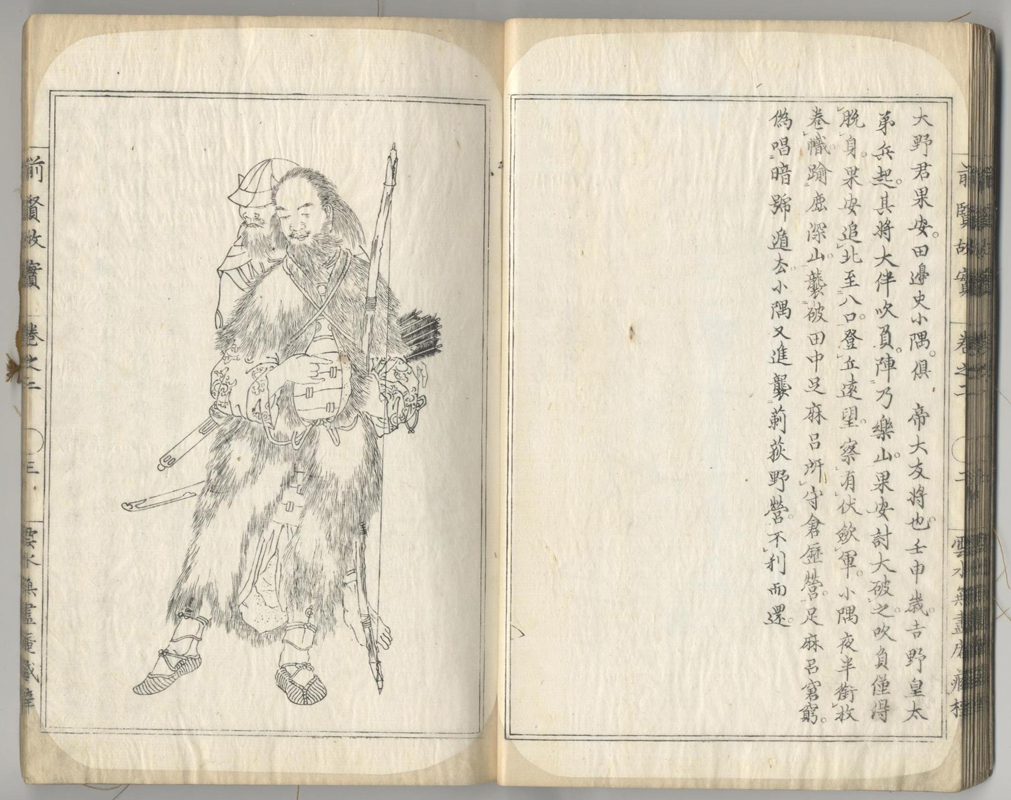 大野君果安。田邉史小隅。俱 帝大友將也。壬申歳。吉野皇太
弟兵起。其將大伴吹負。陣乃樂山。果安討大破之。吹負僅得
脱身。果安追北至八口。登丘遠望。察有伏歛軍。小隅夜半銜枚
卷幟踰鹿深山。襲破田中足麻呂所守倉歷營。足麻呂窘窮。
偽唱暗號遁去。小隅又進襲莿萩野營。不利而還。
前賢故實 卷之二 二 雲水無盡庵藏梓
前賢故實 卷之二 三 雲水無盡庵藏